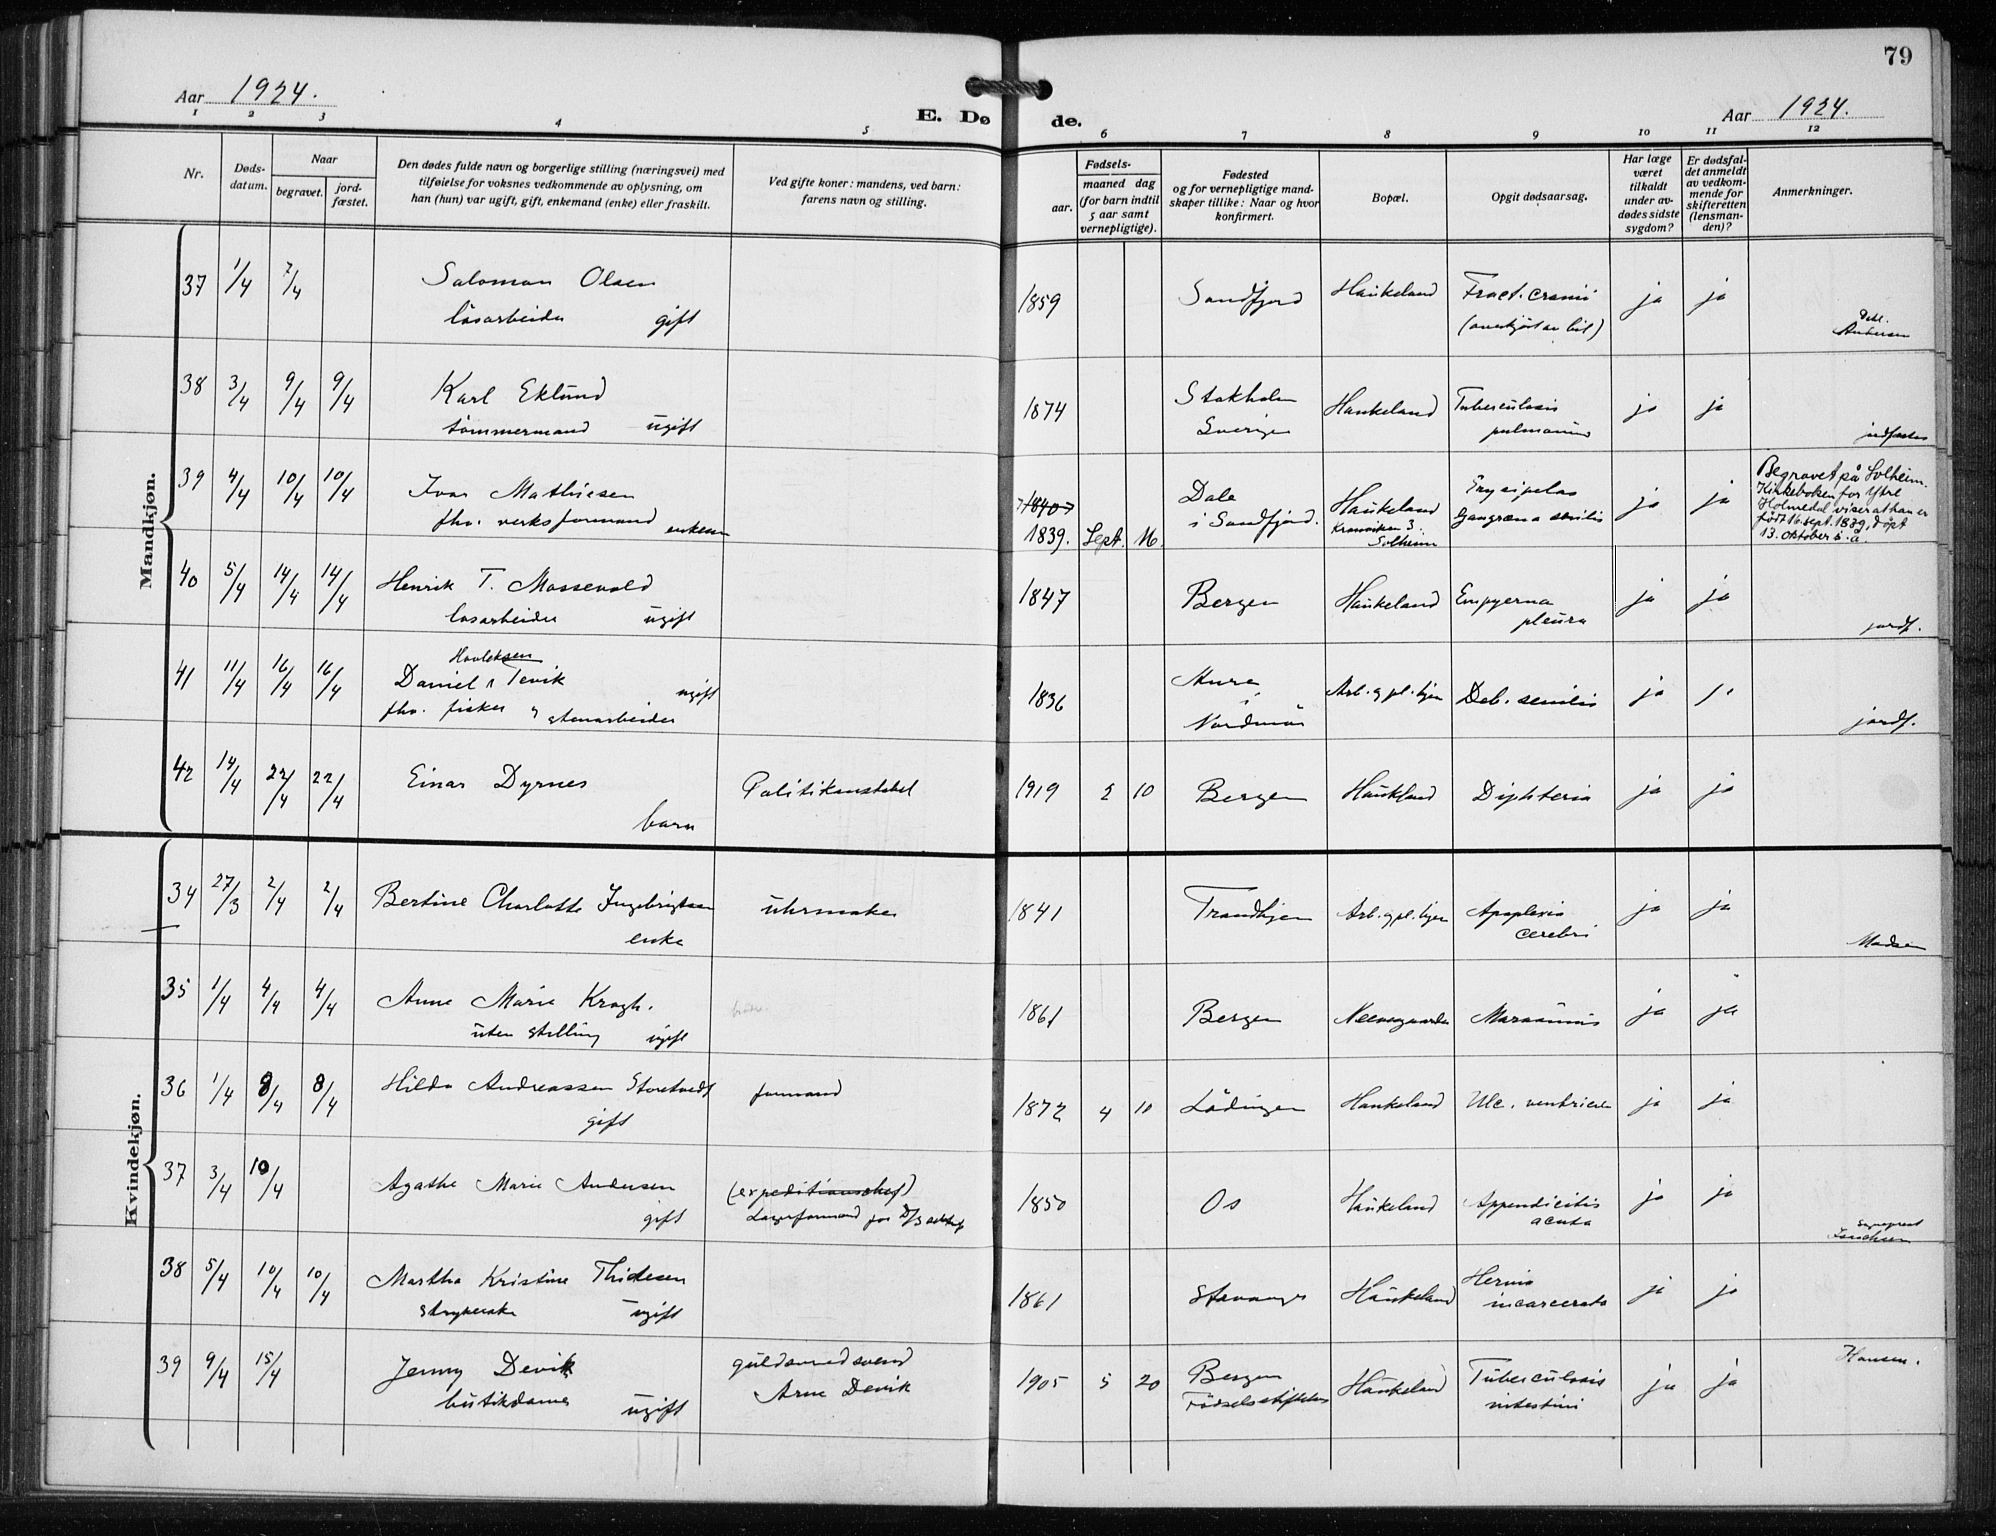 79
Aar 1924.
E. Dø de.
Aar 1924.
1 2 3 4 5 6 7 8 9 10 11 12
Nr.
Døds-
datum.
Naar
begravet.
jord-
fæstet.
Den dødes fulde navn og borgerlige stilling (næringsvei) med
tilføielse for voksnes vedkommende av oplysning, om
han (hun) var ugift, gift, enkemand (enke) eller fraskilt.
Ved gifte koner: mandens, ved barn:
farens navn og stilling.
Fødsels-
aar.
maaned dag
(for barn indtil
5 aar samt
vernepligtige).
Fødested
og for vernepligtige mand-
skaper tillike: Naar og hvor
konfirmert.
Bopæl.
Opgit dødsaarsag.
Har læge
været
tilkaldt
under av-
dødes sidste
sygdom?
Er dødsfal-
det anmeldt
av vedkom-
mende for
skifteretten
(lensman-
den)?
Anmerkninger.
Mandkjøn.
37 1/4 7/4 Salomon Olsen 1859 Sandfjord Haukeland Fract. cranii ja ja
løsarbeider gift (overkjørt av bil)
Andersen
38 3/4 9/4 9/4 Karl Eklund 1874 Stokholm Haukeland Tuberculosis ja ja
tømmermand ugift Sverige pulmonum
39 4/4 10/4 10/4 Ivar Mathiesen 1840 Dale Haukeland Erysipelas ja ja
fhv. verksformand enkem 1839. Sept. 16. i Sandfjord. Kronviken 3. Solheim Gangræna senilis
Begravet på Solheim.
Kirkeboken for Ytre
Holmedal viser at han er
født 16. sept. 1839, døpt
13. oktober s.a.
40 5/4 14/4 14/4 Henrik T. Mossevold 1847 Bergen Haukeland Empyema ja ja
løsarbeider ugift pleura jordf.
41 11/4 16/4 16/4 Daniel Tevik ugift 1836 Aure Arb. g pl. hjem Deb. senilis ja
fhv. fisker og stenarbeider Nordmør jordf.
42 14/4 22/4 22/4 Einar Dyrnes Politikonstabel 1919 2 10 Bergen Haukland Diphteria ja ja
barn
Kvindekjøn.
34 27/3 2/4 2/4 Bertine Charlotte Ingebrigtsen uhrmaker 1841 Trondhjem Arb. g pl. hjem Apoplexia ja ja
enke cerebri Madsen
35 1/4 4/4 4/4 Anne Marie Krogh. 1861 Bergen Neevengaarden Marasmus ja ja
uten stilling ugift
36 1/4 8/4 8/4 Hilda Andreassen Storetvedt formand 1872 4 10 Lødingen Haukeland Ulc. ventriculi ja ja
gift
37 3/4 10/4 Agathe Marie Andersen (expeditionschef) 1850 Os Haukeland Appendicitis ja ja
gift Lagerformand for D/S acuta
38 5/4 10/4 10/4 Martha Kristine Thidesen 1861 Stavanger Haukeland Hernia ja ja
strykerske ugift incarcerata
39 9/4 15/4 Jenny Devik guldsmedsvend 1905 5 20 Bergen Haukeland Tuberculosis ja ja Hansen.
butikdame ugift Arne Devik Fødselsstiftelsen intestini